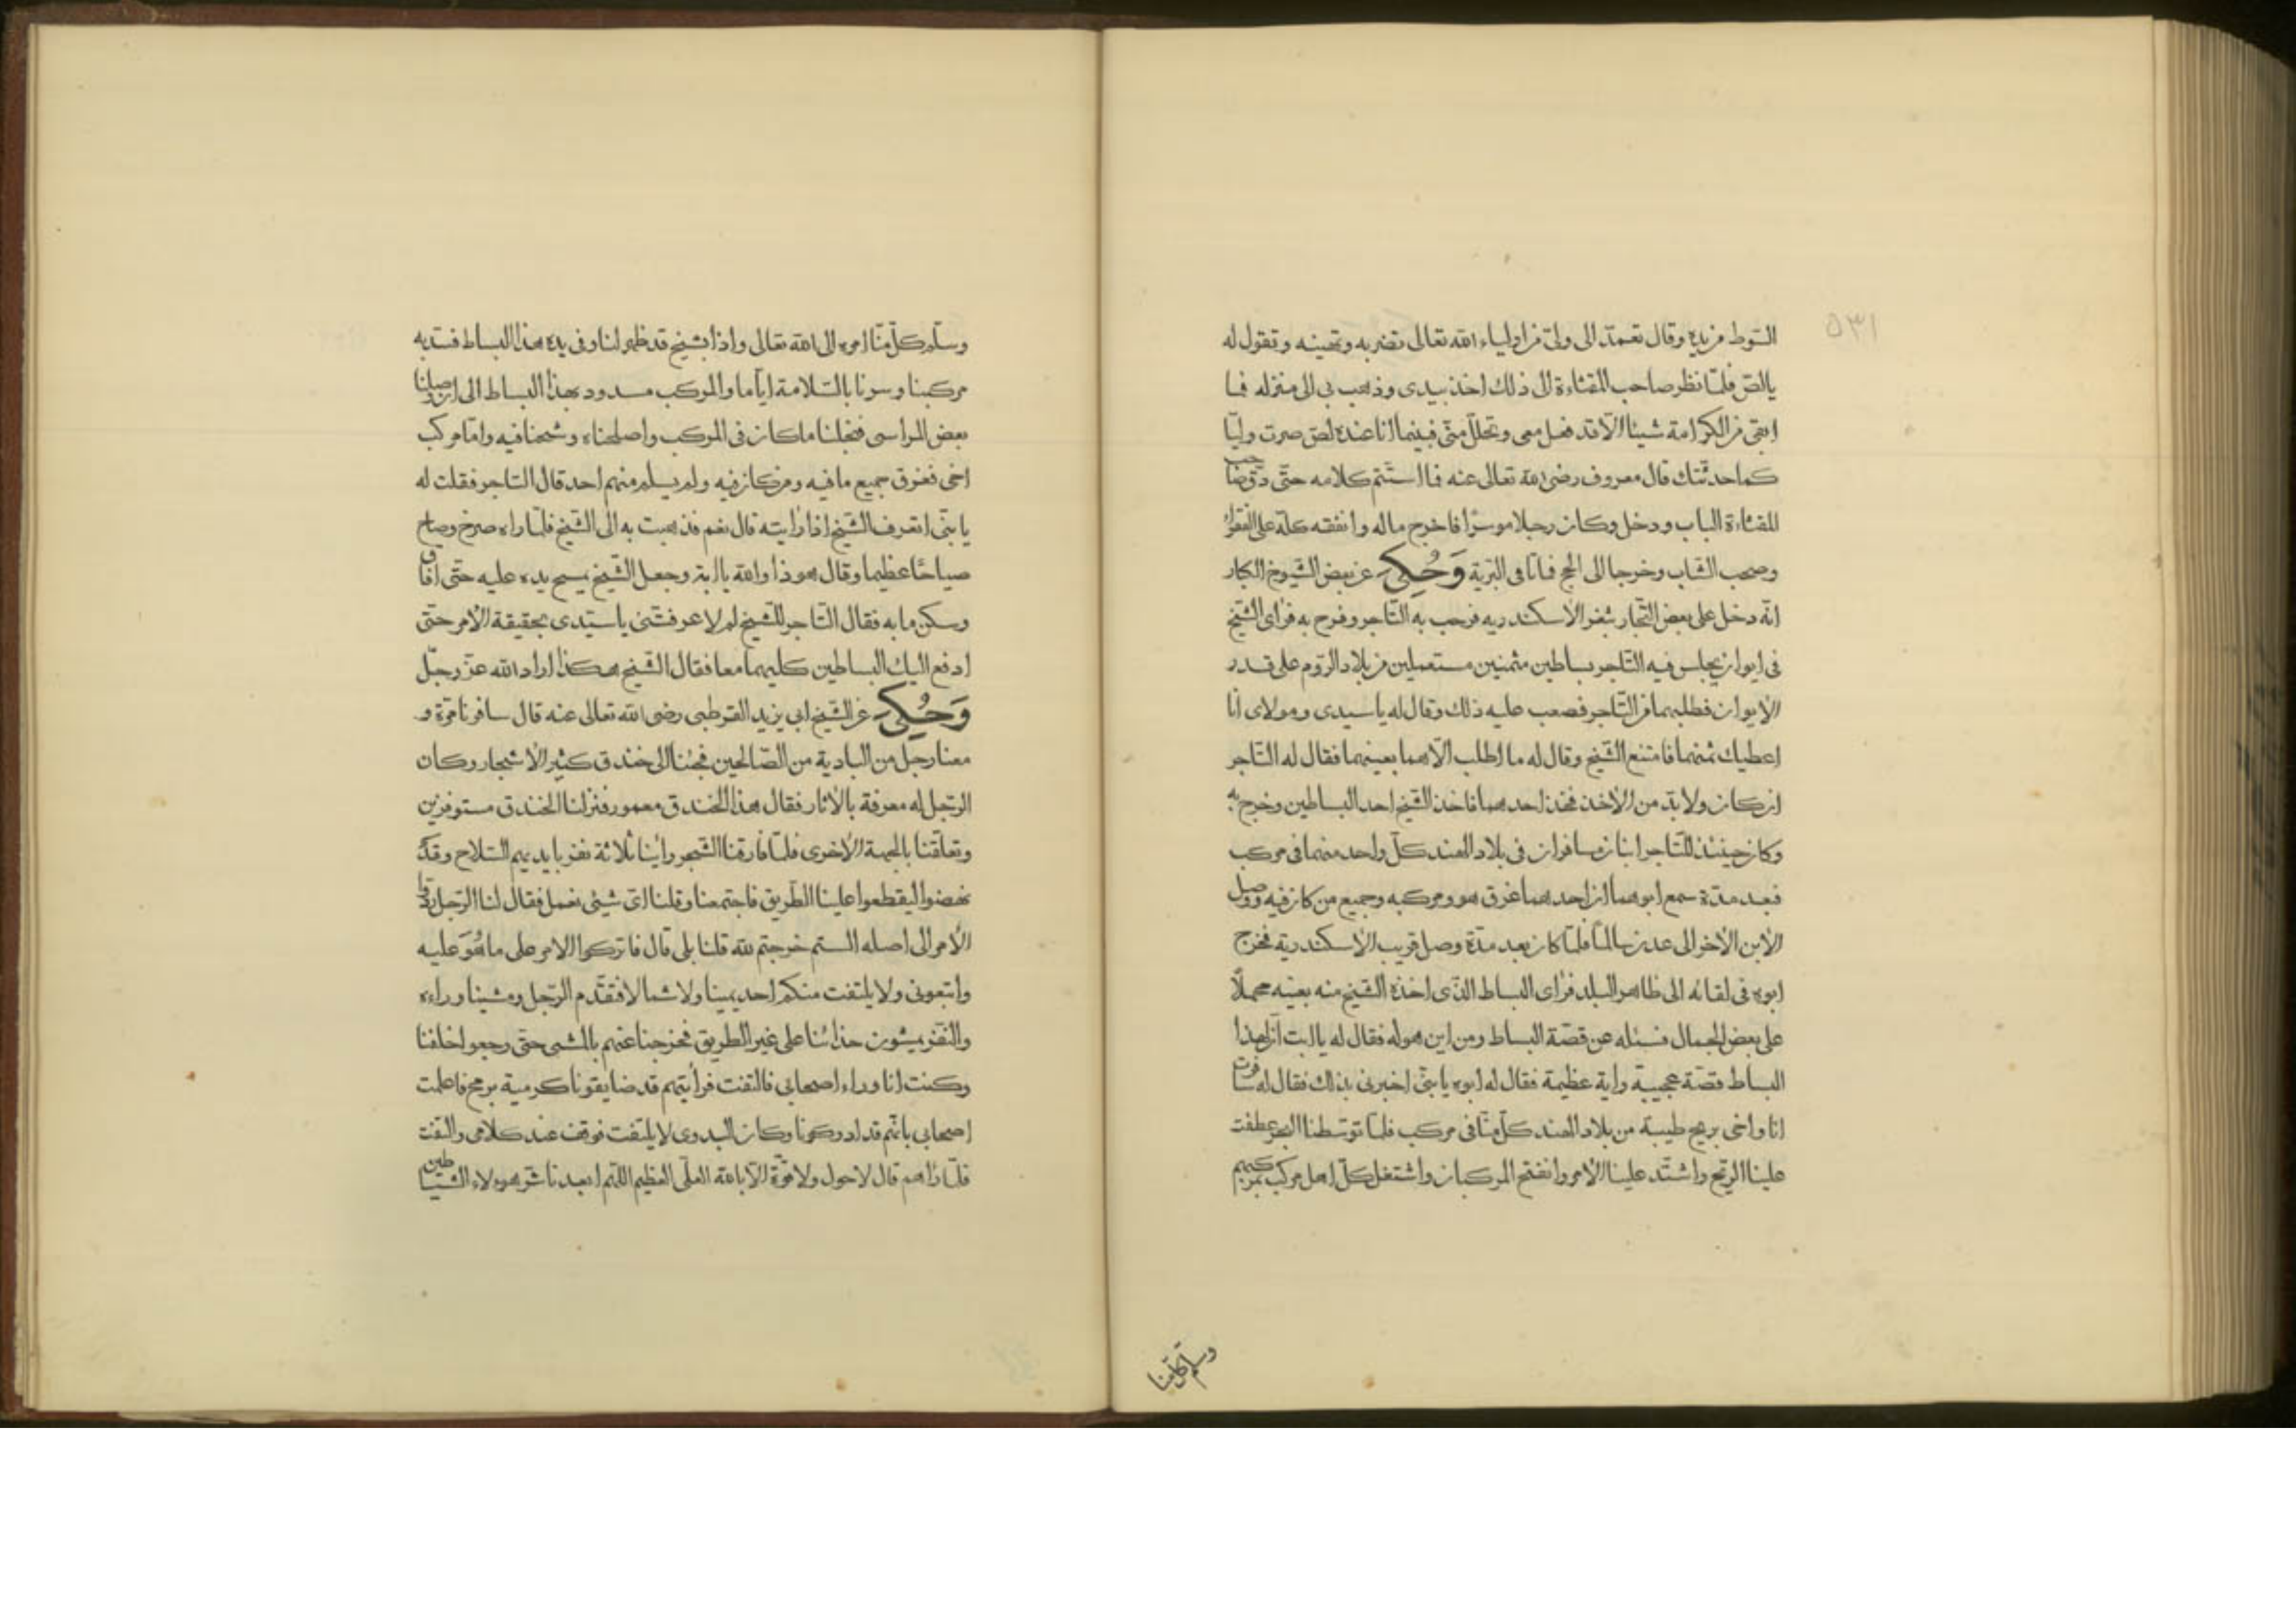 ٥٣١
السّوط من يده وقال تعمد الى ولىّ من اولياء الله تعالى تضربه وتهينه وتقول له
يالصّ فلمّا نظر صاحب المقثاءة الى ذلك اخذ بيدى وذهب بى الى منزله فما
ابقى من الكرامة شيئا الّا قد فعل معى وتحلّل منّى فبينما انا عنده لصّ صرت وليّا
كما حدثتك قال معروف رضى الله تعالى عنه فما استتم كلامه حتّى دقّ صاحب
المقثاءة الباب ودخل وكان رجلا موسرًا فاخرج ماله وانفقه كلّه على الفقراء
وصحب الشّاب وخرجا الى الحج فماتا فى البريّة وَحُكِىَ عن بعض الشيوخ الكبار
انّه دخل على بعض التّجار بثغر الاسكندريه فرحب به التّاجر وفرح به فراى الشّيخ
فى ايوان يجلس فيه التّاجر بساطين مثمنين مستعملين من بلاد الرّوم على قدر
الايوان فطلبهما من التّاجر فصعب عليه ذلك وقال له يا سيدى ومولاى انا
اعطيك ثمنهما فامتنع الشّيخ وقال له ما اطلب الّا هما بعينهما فقال له التّاجر
ان كان ولا بدّ من الاخذ فخذ احدهما فاخذ الشّيخ احد البساطين وخرج به
وكان حينئذ للتّاجر ابنان مسافران فى بلاد الهند كلّ واحد منهما فى مركب
فبعد مدّة سمع ابوهما ان احدهما غرق هو ومركبه وجميع من كان فيه ووصل
الابن الاخر الى عدن سالمًا فلمّا كان بعد مدّة وصل قريب الاسكندرية فخرج
ابوه فى لقائه الى ظاهر البلد فراى البساط الذّى اخذه الشّيخ منه بعينه محملًا
على بعض الجمال فسئله عن قصّة البساط ومن اين هو له فقال له يا ابت انّ لهذا
البساط قصّة عجيبة واية عظيمة فقال له ابوه يا بنّى اخبرنى بذلك فقال له سافرت
انا واخى بريح طيبة من بلاد الهند كلّ منّا فى مركب فلمّا توسّطنا البحر عطفت
علينا الرّيح واشتدّ علينا الامر وانفتح المركبان واشتغل كلّ اهل مركب بمركبهم
وسلّم كلّ منّا
وسلّم كلّ منّا امره الى الله تعالى واذا بشيخ قد ظهر لنا وفى يده هذا البساط فسدّ به
مركبنا وسرنا بالسّلامة ايّاما والمركب مسدود بهذا البساط الى ان وصلنا
بعض المراسى فنجلنا ما كان فى المركب واصلحناه وشحنا فيه وامّا مركب
اخى فغرق جميع ما فيه ومن كان فيه ولم يسلم منهم احد قال التّاجر فقلت له
يا بنّى اتعرف الشّيخ اذا رايته قال نعم فذهبت به الى الشّيخ فلمّا راه صرخ وصاح
صياحًا عظيما وقال هو ذا والله يا ابة وجعل الشّيخ يمسح يده عليه حتّى افاق
وسكن ما به فقال التّاجر للشّيخ لم لا عرفتنى يا سيّدى بحقيقة الامر حتّى
ادفع اليك البساطين كليهما معا فقال الشّيخ هكذا اراد الله عزّ وجلّ
وَحُكِىَ عن الشّيخ ابى يزيد القرطبى رضى الله تعالى عنه قال سافرنا مرّة و
معنا رجل من البادية من الصّالحين فجئنا الى خندق كثير الاشجار وكان
الرّجل له معرفة بالاثار فقال هذا الخندق معمور فنزلنا الخندق مستوفزين
وتعلّقنا بالجهة الاخرى فلمّا فارقنا الشّجر راينا ثلاثة نفر بايديهم السّلاح وقد
نهضوا ليقطعوا علينا الطّريق فاجتمعنا وقلنا اىّ شيئى نعمل فقال لنا الرّجل ردّوا
الامر الى اصله الستم خرجتم لله قلنا بلى قال فاتركوا الامر على ما هُوَ عليه
واتبعونى ولا يلتفت منكم احد يمينا ولا شمالا فتقدّم الرّجل ومشينا وراءه
والنّفر يمشون حذائنا على غير الطريق فخرجنا عنهم بالمشى حتّى رجعوا خلفنا
وكنت انا وراء اصحابى فالتفت فرايتهم قد ضايقونا كرمية برمح فاعلمت
اصحابى بانّهم قد ادركونا وكان البدوى لا يلتفت فوقف عند كلامى والتفت
فلمّا راهم قال لا حول ولا قوّة الّا بالله العلّى العظيم اللّهم ابعد نا شر هؤلاء الشياطين